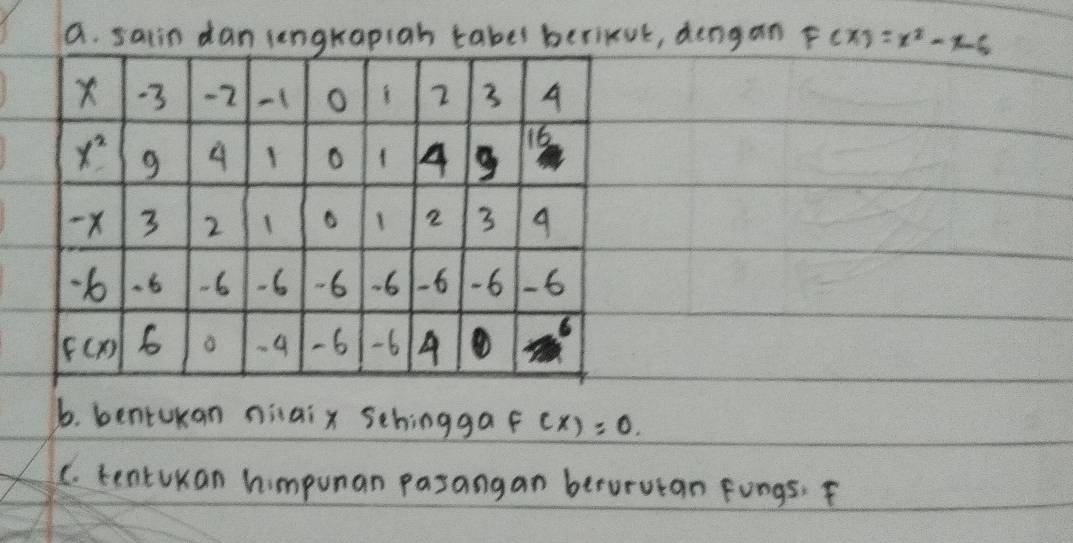 a. salin dan lengkapiah tabel berikut, dengan F(x) = x² - x - 6
x -3 -2 -1 0 1 2 3 4
x² 9 4 1 0 1 4 9 16
-x 3 2 1 0 1 2 3 4
-6 -6 -6 -6 -6 -6 -6 -6 -6
F(x) 6 0 -4 -6 -6 4 0 6
b. bentukan nilai x sehingga F(x) = 0.
c. tentukan himpunan pasangan berurutan Fungsi F